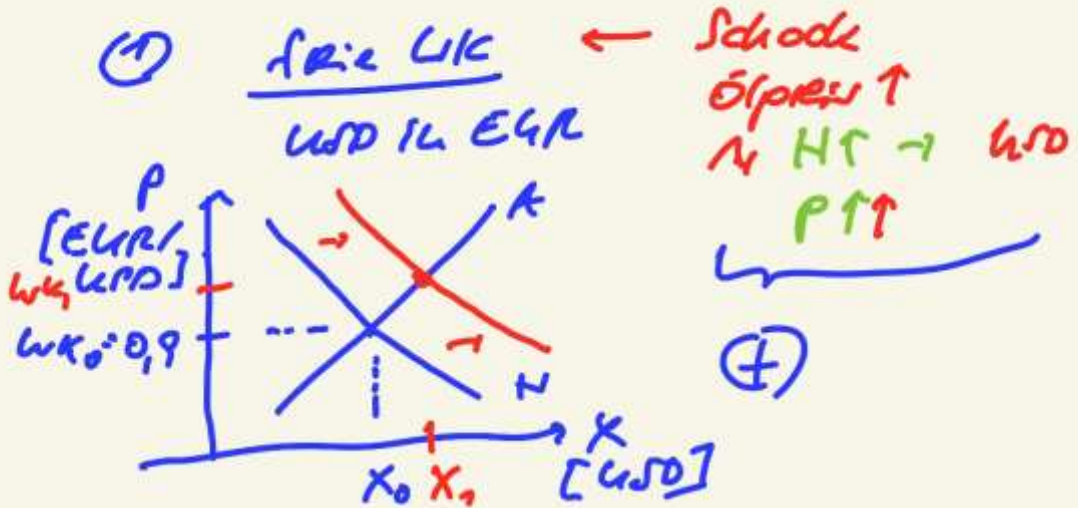 ① freie WK ← Schock
Ölpreis ↑
USD in EUR
N H↑ → USD
P ↑↑
P
[EUR/
USD]
WK₁
WK₀ = 0,9
A
N
⊕
X
[USD]
X₀ X₁